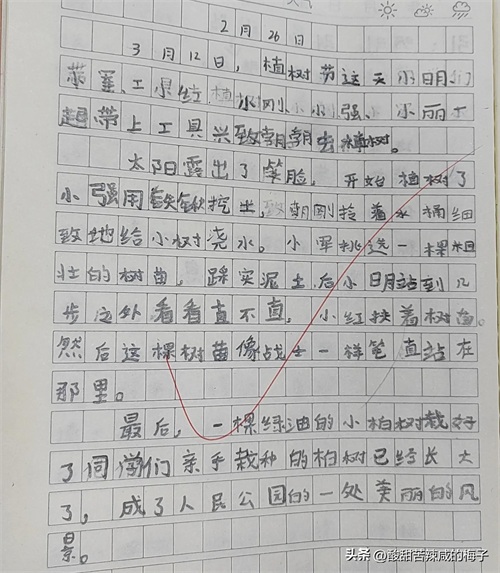 天气
2月26日
3月12日，植树节这天小明
带 工 红 小刚小小强、小丽
起带上工具兴致朝朝去植树。
太阳露出了笑脸，开始植树了
小强用铁锹挖土，小刚拎着水桶细
致地给小树浇水。小军挑选一棵粗
壮的树苗，踩实泥土后小明站到几
步之外看看直不直，小红扶着树苗。
然后这棵树苗像战士一样笔直站在
那里。
最后，一棵绿油的小柏树栽好
了同学们亲手栽种的柏树已经长大
了，成了人民公园的一处美丽的风
景。
头条 @酸甜苦辣咸的梅子